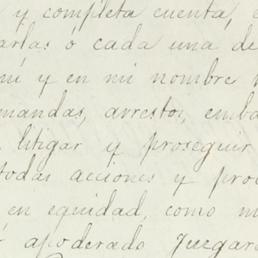 y completa cuenta, e
arlas o cada una de
mi y en mi nombre
mandas, arrestos, emba
litigar y proseguir
todas acciones y pro
en equidad, como m
apoderado juzgar